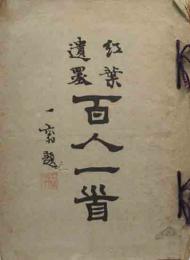 紅葉
遺墨
百人一首
一六題